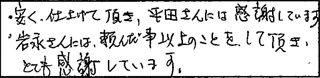 ・安く、仕上げて頂き、平田さんには感謝しています
・岩永さんには、頼んだ事以上のことをして頂き、
とても感謝しています。